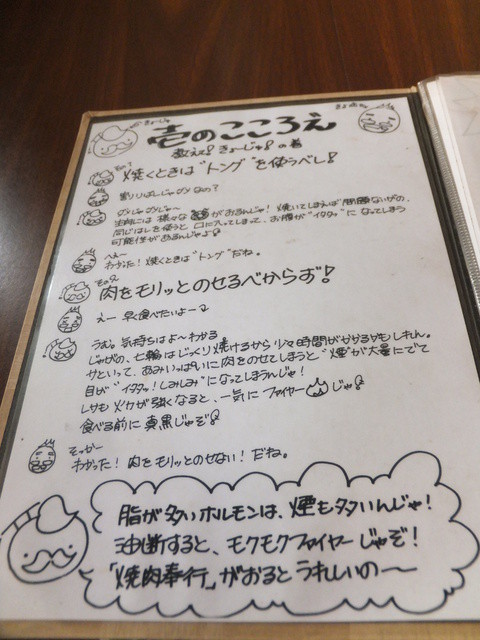 壱のこころえ
教えて!きょーじゅ!の巻
その1
焼くときは"トング"を使うべし!
割りばしじゃダメなの?
のじゃのじゃ〜
生肉には様々な菌がおるんじゃ!焼いてしまえば問題ないが、
同じはしを使うと口に入ってしまって、お腹が"イタタ"になってしまう
可能性があるんじゃよ!
へぇー
わかった!焼くときは"トング"だね。
その2
肉をモリッとのせるべからず!
えー 早く食べたいよー
うむ。気持ちはよ〜わかる
じゃがの、七輪はじっくり焼けるから少々時間がかかるかもしれん。
かといって、あみいっぱいに肉をのせてしまうと"煙"が大量にでて
目が"イタタッ!しみしみ"になってしまうんじゃ!
しかも火力が強くなると、一気にファイヤーじゃ!
食べる前に真黒じゃぞ!
そっかー
わかった!肉をモリッとのせない!だね。
脂が多いホルモンは、煙も多いんじゃ!
油断すると、モクモクファイヤーじゃぞ!
「焼肉奉行」がおるとうれしいの〜